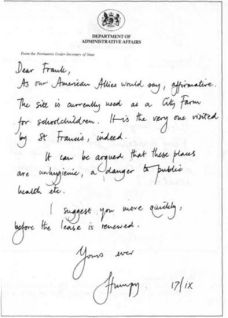 DEPARTMENT OF
ADMINISTRATIVE AFFAIRS
From the Permanent Under-Secretary of State
Dear Frank,
As our American Allies would say, affirmative.
The site is currently used as a City Farm
for schoolchildren. It is the very one visited
by St Francis, indeed.
It can be argued that these places
are unhygienic, a danger to public
health etc.
I suggest you move quickly,
before the lease is renewed.
Yours ever
Humpy
17/IX